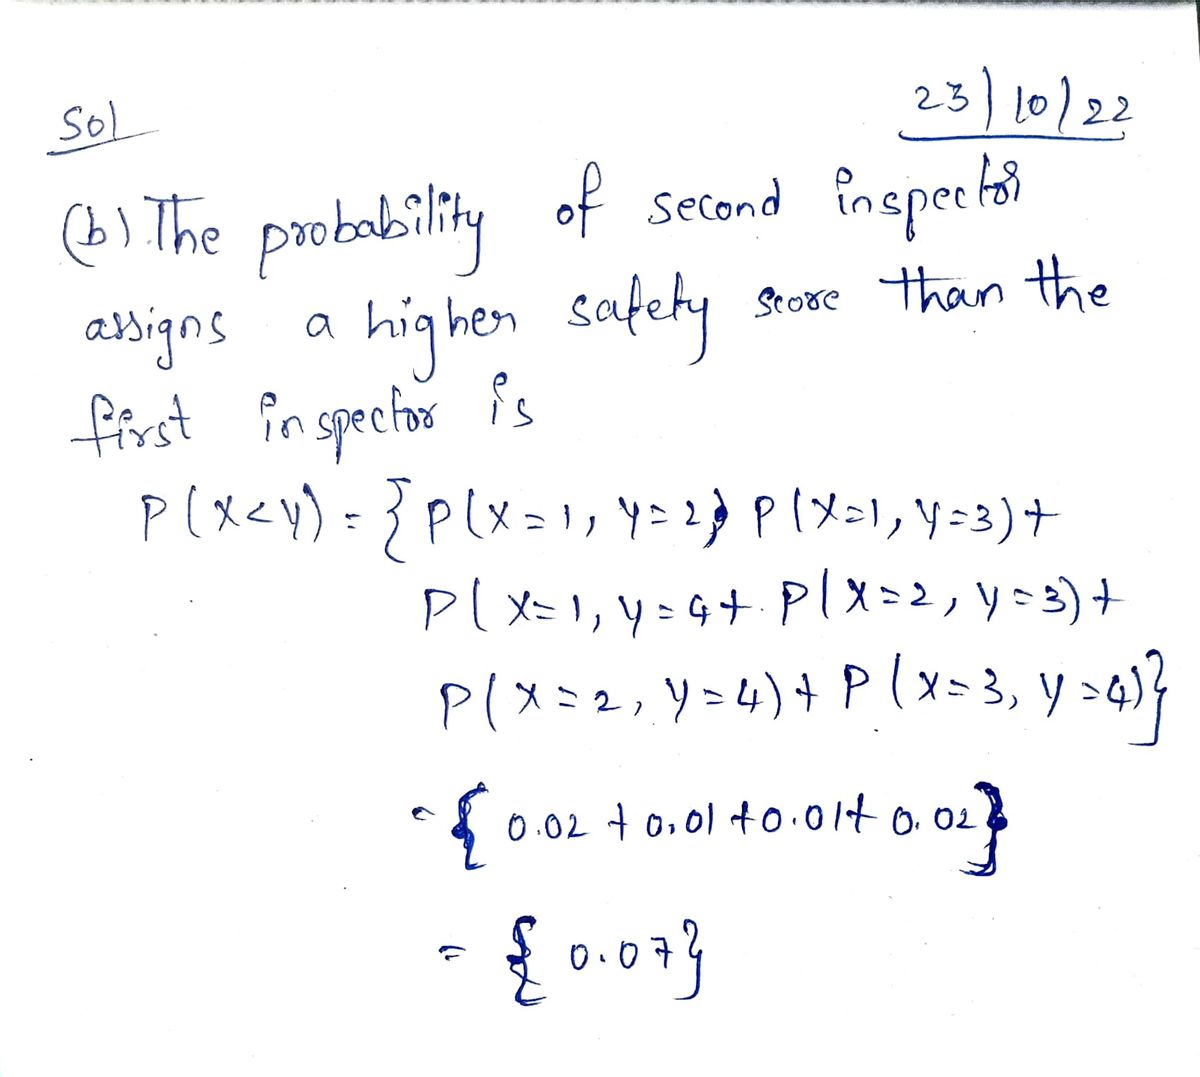 Sol
23/10/22
(b). The probability of second inspector
assigns a higher safety score than the
first inspector is
P(X<Y) = { P(X=1, Y=2) P(X=1, Y=3)+
P(X=1, Y=4+ P(X=2, Y=3)+
P(X=2, Y=4)+ P(X=3, Y=4)}
= { 0.02 + 0.01 +0.01+ 0.02}
= { 0.07}